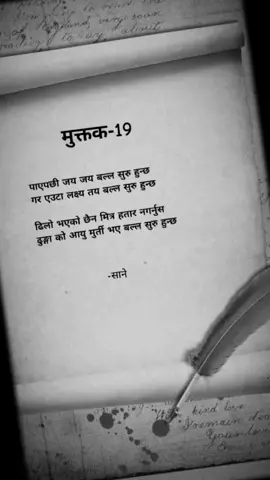 मुक्तक-19
पाएपछी जय जय बल्ल सुरु हुन्छ
गर एउटा लक्ष्य तय बल्ल सुरु हुन्छ
ढिलो भएको छैन मित्र हतार नगर्नुस
ढुङ्गा को आयु मुर्ती भए बल्ल सुरु हुन्छ
-साने
kind
remain